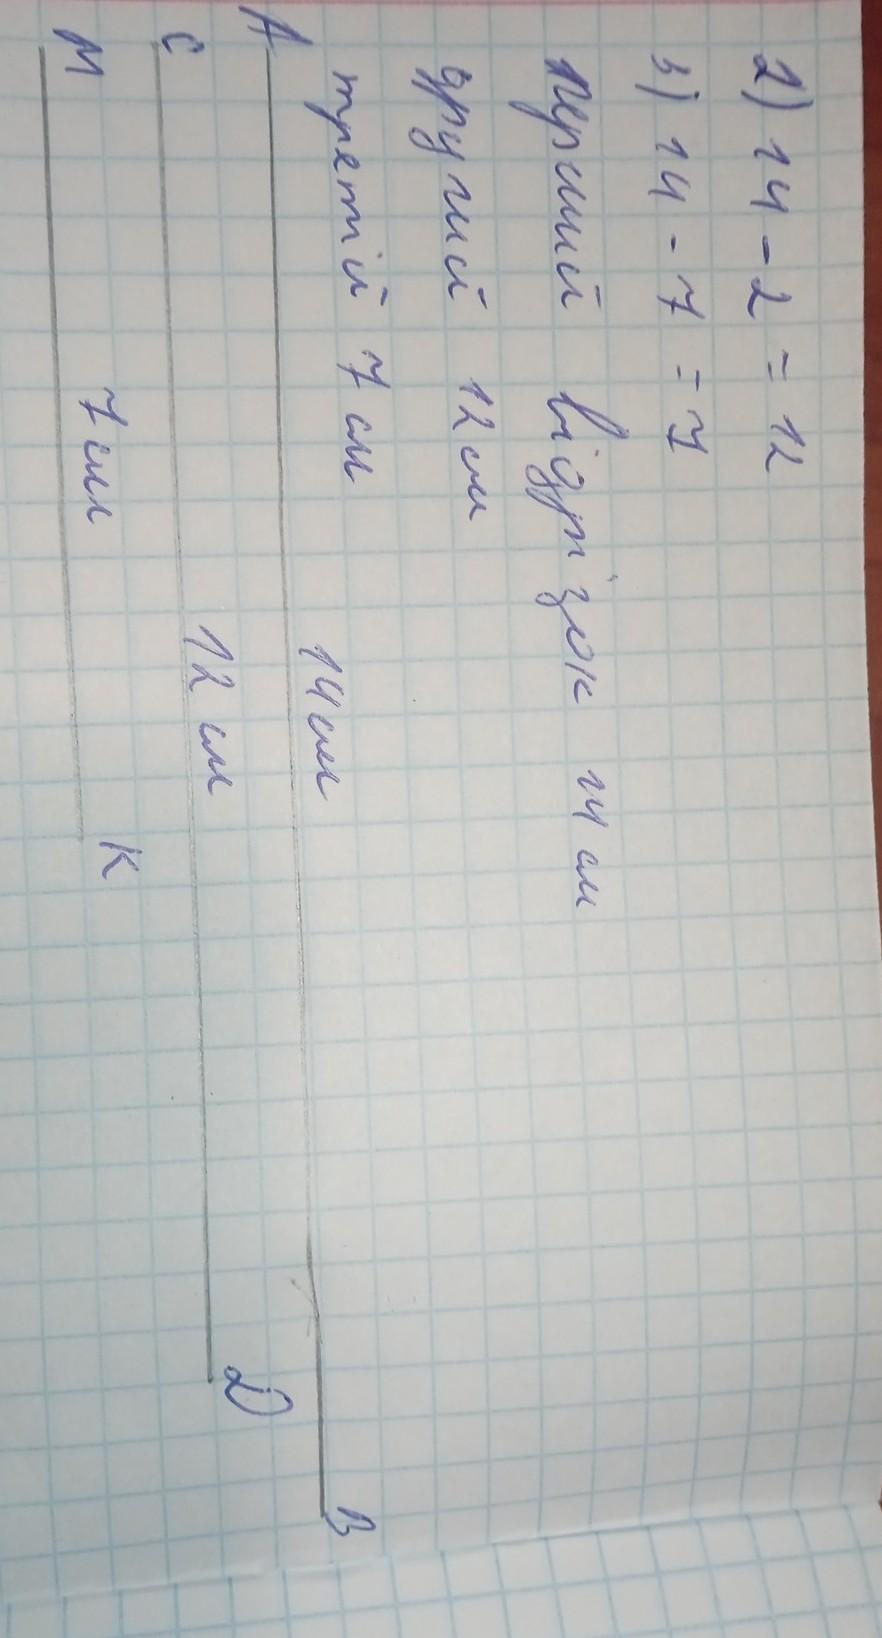 2) 14 - 2 = 12
3) 14 - 7 = 7
Перший відрізок 14 см
другий 12 см
третій 7 см
14 см
A B
12 см
C D
7 см
M K